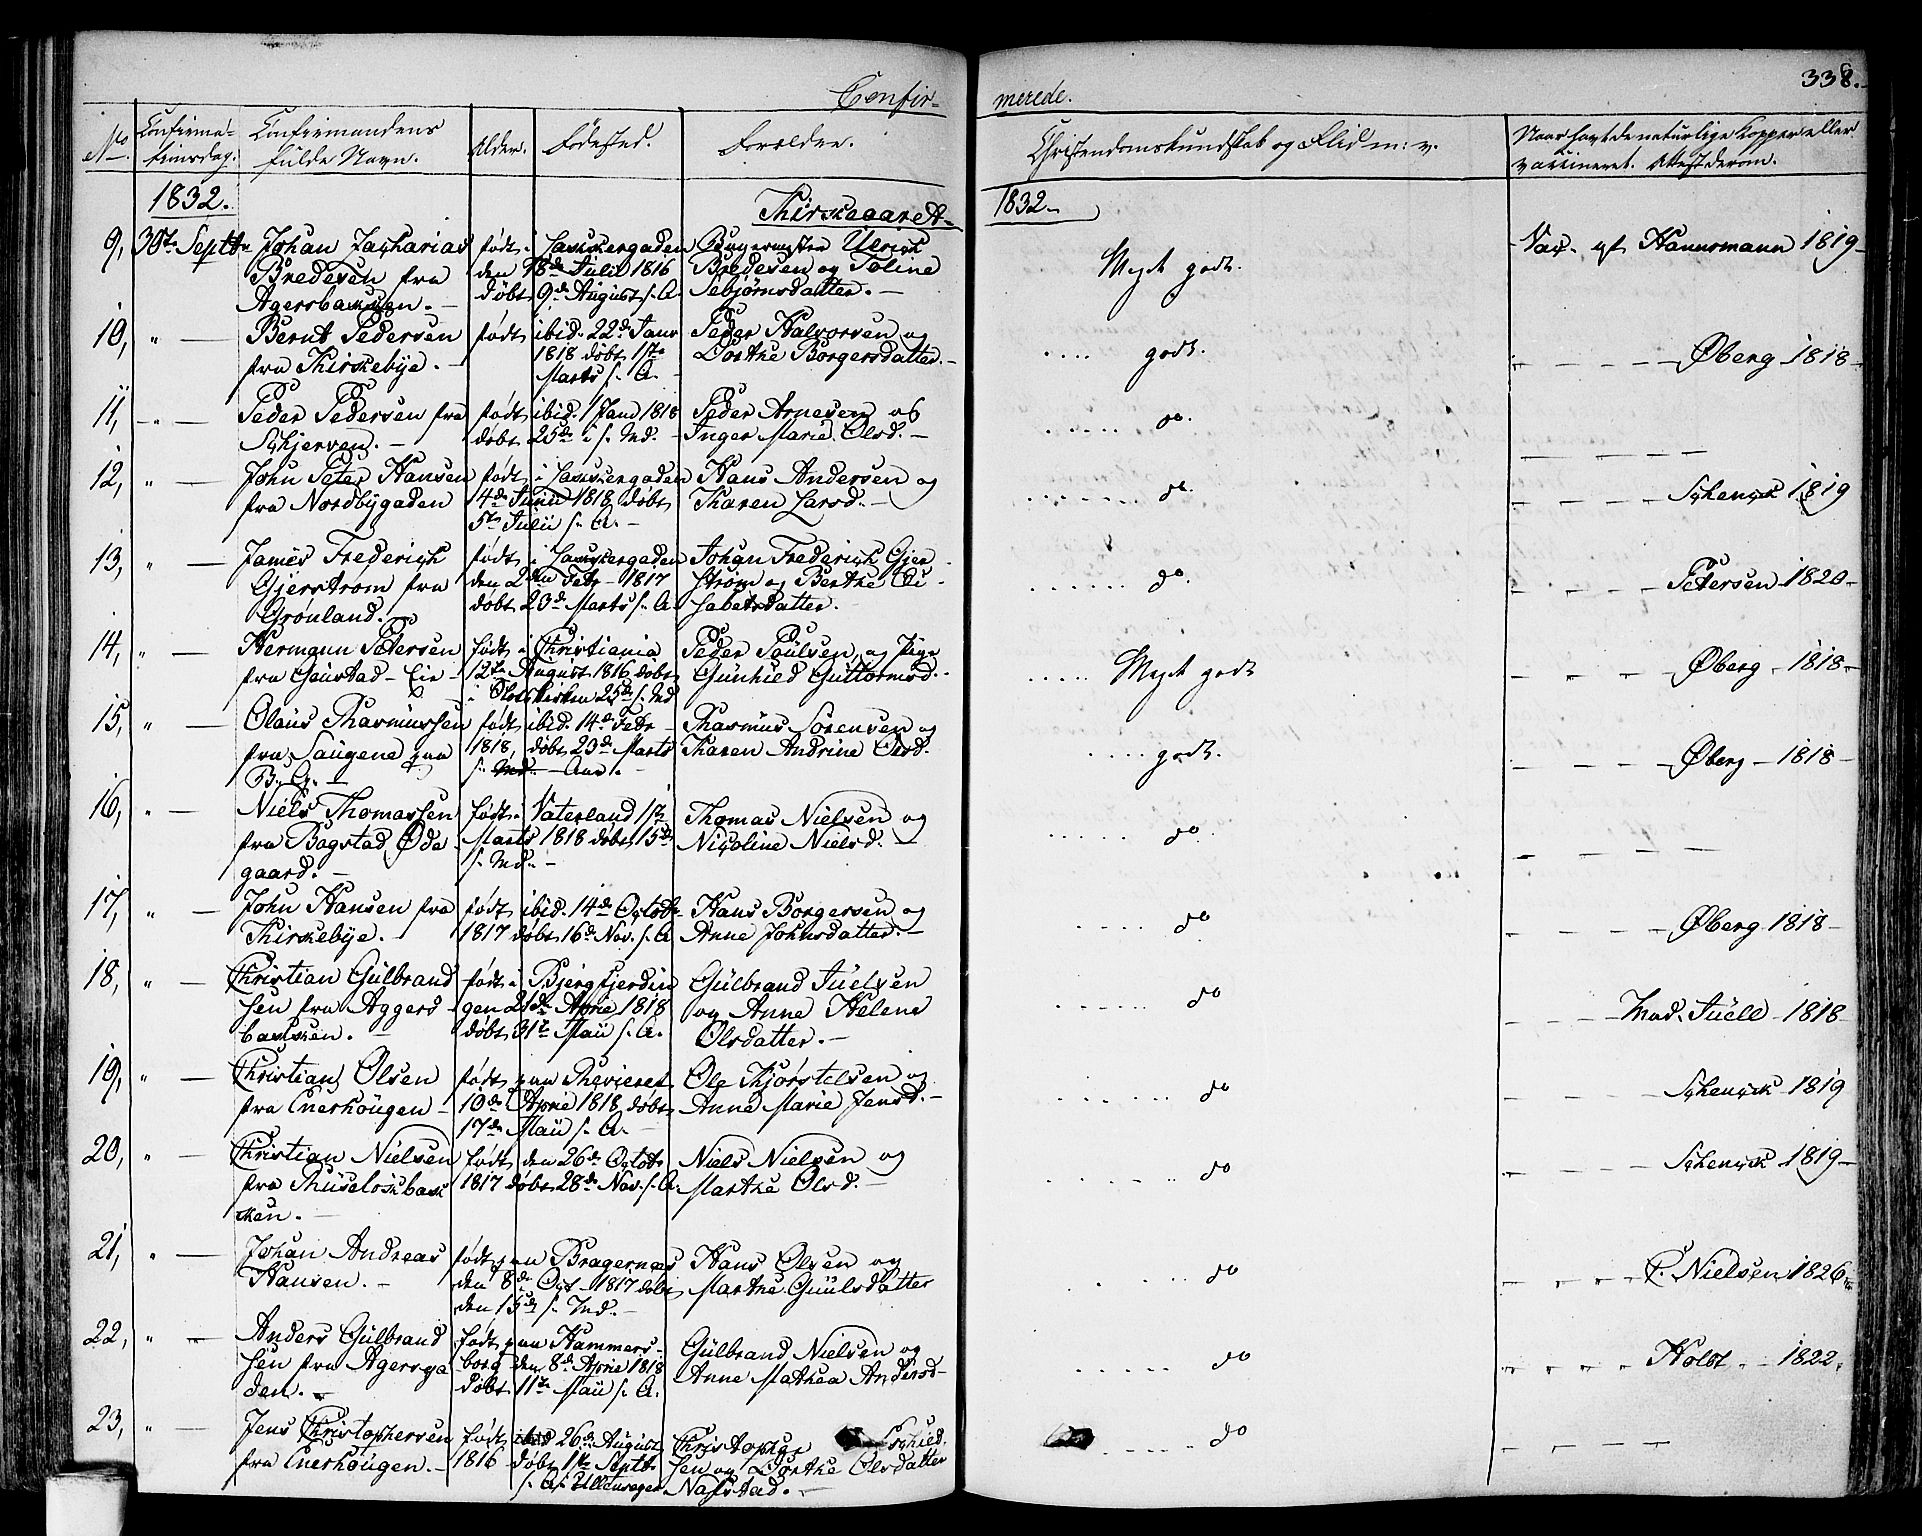 338.
Confir-
merede.
No.
Confirma-
tionsdag.
Confirmandens
fulde Navn.
Alder.
Födested.
Forældre.
Christendomskundskab og Flid m: v.
Naar havt de naturlige Kopper eller
vaccineret. Attest derom.
1832.
1832.
9, 30te Septbr Johan Zacharias
Bredesen fra
Agersbakken.
født i
den 18de Julii 1816
døbt 9de August s. A.
Ulrich
Bredesen og Toline
Tebjørnsdatter.
Meget godt.
Vac. af Hannsmann 1819
10, " Bernt Pedersen
fra
født ibid. 22de Janr
1818 døbt 1ste
Marts s. A.
Peder Halvorsen og
Dorthe Borgersdatter.
godt.
Øberg 1818
11, " Peder Pedersen fra
født ibid. 1 Janr 1818
døbt 25de i s. Md.
Peder Arnesen og
Inger Marie Olsd.
do.
12, " John Peter Hansen
fra Nordbygaden
født i
14de Junii 1818 døbt
5te Julii s. A.
Hans Andersen og
Karen Larsd.
do.
Schenck 1819
13, " James Frederich
Gjerstrom fra
Grønland.
født i
den 2den Febr 1817
døbt 23de Marts s. A.
Johan Frederich Gjer
strøm og Berthe Eli
sabetsdatter.
do.
Petersen 1820
14, " Hermann Petersen
fra Gaustad Eie
født i Christiania
12te August 1816 døbt
i 25de s. Md
Peder Poulsen, og Pige
Gunhild Guttormsd.
Meget godt
Øberg 1818
15, " Olaus Rasmussen
fra Haugene paa
født ibid. 14de Febr
1818, døbt 23de Marts
s. Md. Aar.
Rasmus Sörensen og
Karen Andrine Olsd.
godt.
Øberg 1818
16, " Niels Thomassen
fra Bogstad Øde
gaard.
født i Vaterland 1ste
Marts 1818 døbt 15de
s. Md.
Thomas Nielsen og
Nicoline Nielsd.
do.
17, " John Hansen fra
født ibid. 14de Octobr
1817 døbt 16de Nov. s. A
Hans Borgersen og
Anne Johnsdatter.
do
Øberg 1818
18, " Christian Gulbrand
sen fra Aggers
bakken.
født i
gen 21de April 1818
døbt 31te Maii s. A.
Gulbrand Juelsen
og Anne Helene
Olsdatter.
do
Mad. Juell 1818
19, " Christian Olsen
fra Enerhougen
født paa
10de April 1818, døbt
17de Maii s. A.
Ole og
Anne Marie Jensd.
do
Schenck 1819
20, " Christian Nielsen
fra
ken.
født den 26de Octobr
1817 døbt 28de Nov. s. A.
Niels Nielsen og
Marthe Olsd.
do
Schenck 1819
21, " Johan Andreas
Hansen.
født paa Bragernæs
den 8de Oct 1817 døbt
den 15de s. Md.
Hans Olsen og
Marthe Guulsdatter
do
C. Nielsen 1826
22, " Anders Gulbrand
sen fra Agersga
den.
født paa Hammers-
borg den 8de April 1818
døbt 11te Maii s. A.
Gulbrand Nielsen og
Anne Mathea Andersd
do
Holst 1822.
23, " Jens Christophersen
fra Enerhougen.
født ibid 26de August
1816 døbt 1ste Septbr
s. A.
Christopher
sen og Dorthe Olsdatter
Nafstad.
do